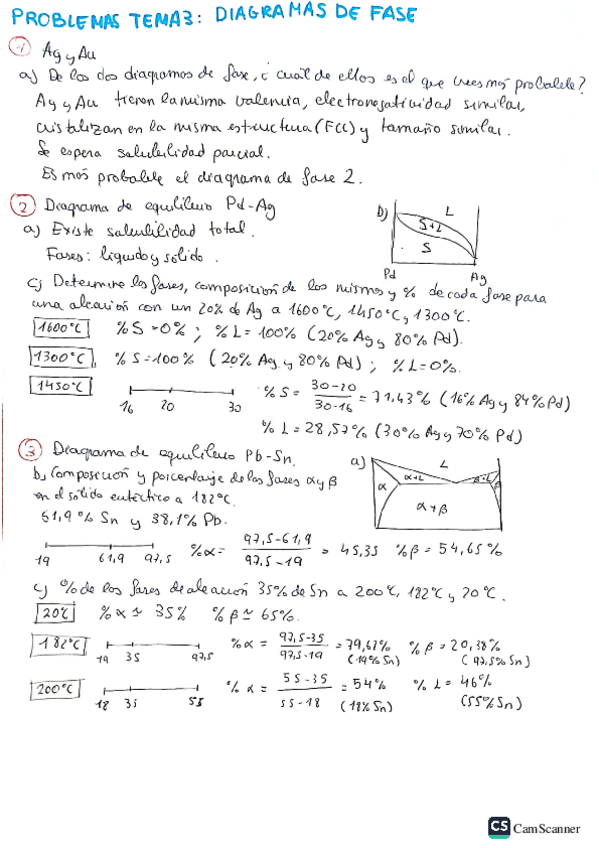 PROBLEMAS TEMA3: DIAGRAMAS DE FASE
1 Ag y Au
a) De los dos diagramas de fase, ¿cuál de ellos es el que crees más probable?
Ag y Au tienen la misma valencia, electronegatividad similar,
cristalizan en la misma estructura (FCC) y tamaño similar.
Se espera solubilidad parcial.
Es más probable el diagrama de fase 2.
2 Diagrama de equilibrio Pd-Ag
a) Existe solubilidad total.
Fases: líquido y sólido.
b)
L
S+L
S
Pd
Ag
c) Determine las fases, composición de los mismos y % de cada fase para
una aleación con un 20% de Ag a 1600°C, 1450°C, y 1300°C.
1600°C %S=0% ; %L=100% (20% Ag y 80% Pd).
1300°C %S=100% (20% Ag y 80% Pd) ; %L=0%.
1450°C 16 20 30 %S = 30-20 / 30-16 = 71,43% (16% Ag y 84% Pd)
%L = 28,57% (30% Ag y 70% Pd)
3 Diagrama de equilibrio Pb-Sn.
a)
L
α
α+L
β+L
β
α+β
b) Composición y porcentaje de las fases α y β
en el sólido eutéctico a 182°C.
61,9% Sn y 38,1% Pb.
19 61,9 97,5 %α = 97,5-61,9 / 97,5-19 = 45,35 %β = 54,65%
c) % de las fases de aleación 35% de Sn a 200°C, 182°C y 20°C.
20°C %α ≃ 35% %β ≃ 65%.
182°C 19 35 97,5 %α = 97,5-35 / 97,5-19 = 79,62% (19% Sn) %β = 20,38% (97,5% Sn)
200°C 18 35 55 %α = 55-35 / 55-18 = 54% (18% Sn) %L = 46% (55% Sn)
CS CamScanner